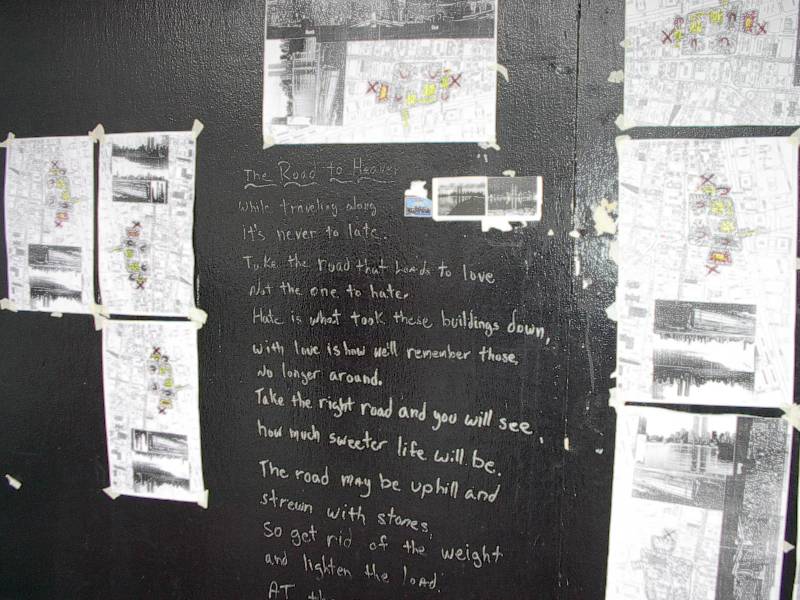 The Road to Heaven
While traveling along
it's never to late.
Take the road that Leads to love
Not the one to hate.
Hate is what took these buildings down,
with love is how we'll remember those,
No longer around.
Take the right road and you will see,
how much sweeter life will be.
The road may be uphill and
strewn with stones,
So get rid of the weight
and lighten the load.
AT the